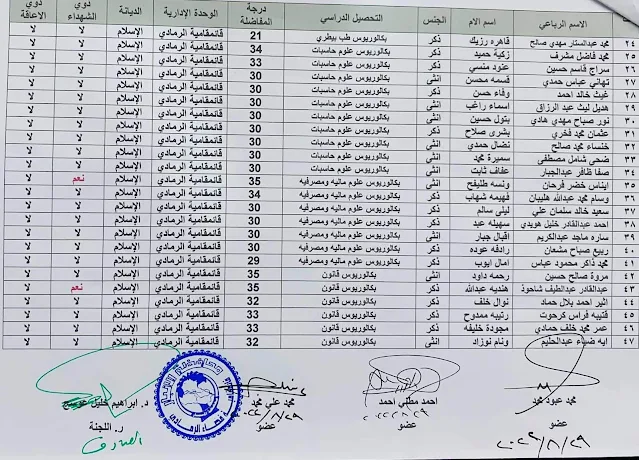 ت الاسم الرباعي اسم الام الجنس التحصيل الدراسي درجة المفاضلة الوحدة الإدارية الديانة ذوي الشهداء ذوي الاعاقة
٢٤ محمد عبدالستار مهدي صالح قاهره رزيك ذكر بكالوريوس طب بيطري 21 قائمقامية الرمادي الإسلام لا لا
٢٥ محمد فاضل مشرف زكية حميد ذكر بكالوريوس علوم حاسبات 34 قائمقامية الرمادي الإسلام لا لا
٢٦ سراج قاسم حسين عنود منسي ذكر بكالوريوس علوم حاسبات 33 قائمقامية الرمادي الإسلام لا لا
٢٧ تهاني عباس حمدي قسمه محسن انثى بكالوريوس علوم حاسبات 30 قائمقامية الرمادي الإسلام لا لا
٢٨ غيث خالد احمد وفاء حسن ذكر بكالوريوس علوم حاسبات 30 قائمقامية الرمادي الإسلام لا لا
٢٩ هديل ليث عبد الرزاق اسماء راغب انثى بكالوريوس علوم حاسبات 30 قائمقامية الرمادي الإسلام لا لا
٣٠ نور صباح مهدي هادي بتول حسين انثى بكالوريوس علوم حاسبات 30 قائمقامية الرمادي الإسلام لا لا
٣١ عثمان محمد فخري بشرى صلاح ذكر بكالوريوس علوم حاسبات 30 قائمقامية الرمادي الإسلام لا لا
٣٢ خنساء محمد صالح نضال حمدي انثى بكالوريوس علوم حاسبات 30 قائمقامية الرمادي الإسلام لا لا
٣٣ ضحى شامل مصطفى سميرة محمد انثى بكالوريوس علوم حاسبات 30 قائمقامية الرمادي الإسلام لا لا
٣٤ صفا ظافر عبدالجبار عفاف ثابت انثى بكالوريوس علوم حاسبات 30 قائمقامية الرمادي الإسلام لا لا
٣٥ ايناس خضر فرحان ونسه طليفح انثى بكالوريوس علوم ماليه ومصرفيه 35 قائمقامية الرمادي الإسلام نعم لا
٣٦ وسام محمد عبدالله هليبان فهيمه شهاب ذكر بكالوريوس علوم ماليه ومصرفيه 34 قائمقامية الرمادي الإسلام لا لا
٣٧ سعيد خالد سلمان علي ليلى سالم ذكر بكالوريوس علوم ماليه ومصرفيه 30 قائمقامية الرمادي الإسلام لا لا
٣٨ احمد عبدالقادر خليل هويدي سهيله عبد ذكر بكالوريوس علوم ماليه ومصرفيه 30 قائمقامية الرمادي الإسلام لا لا
٣٩ ساره ماجد عبدالكريم اقبال جبار انثى بكالوريوس علوم ماليه ومصرفيه 30 قائمقامية الرمادي الإسلام لا لا
٤٠ ربيع صباح مشعان رافده عوده ذكر بكالوريوس علوم ماليه ومصرفيه 30 قائمقامية الرمادي الإسلام لا لا
٤١ محمد ذاكر محمود عباس امال ايوب ذكر بكالوريوس علوم ماليه ومصرفيه 29 قائمقامية الرمادي الإسلام لا لا
٤٢ مروة صالح حسين رحمه داود انثى بكالوريوس قانون 35 قائمقامية الرمادي الإسلام لا لا
٤٣ عبدالقادر عبدالطيف شاحوذ هنديه عبدالله ذكر بكالوريوس قانون 35 قائمقامية الرمادي الإسلام نعم لا
٤٤ اثير احمد بلال حماد نوال خلف ذكر بكالوريوس قانون 32 قائمقامية الرمادي الإسلام لا لا
٤٥ قتيبه فراس كرحوت رتيبه ممدوح ذكر بكالوريوس قانون 33 قائمقامية الرمادي الإسلام لا لا
٤٦ عمر محمد خلف حمادي مجودة خليفه ذكر بكالوريوس قانون 33 قائمقامية الرمادي الإسلام لا لا
٤٧ ايه ضياء عبدالحليم ونام نوزاد انثى بكالوريوس قانون 32 قائمقامية الرمادي الإسلام لا لا
محمد عبود محمد احمد مطلبي احمد محمد علي محمد د. ابراهيم خليل
عضو عضو عضو ر. اللجنة